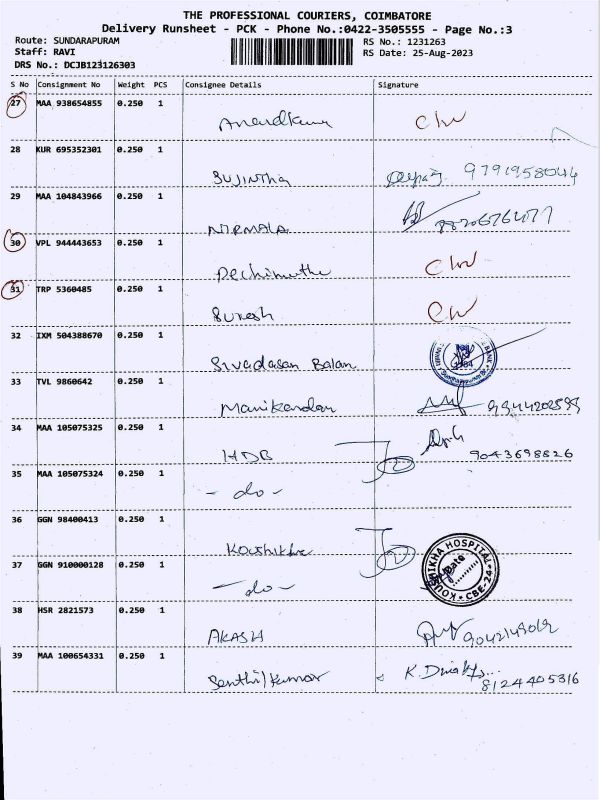 THE PROFESSIONAL COURIERS, COIMBATORE
Delivery Runsheet - PCK - Phone No.:0422-3505555 - Page No.:3
Route: SUNDARAPURAM RS No.: 1231263
Staff: RAVI RS Date: 25-Aug-2023
DRS No.: DCJB123126303
S No Consignment No Weight PCS Consignee Details Signature
27 MAA 938654855 0.250 1
Anandkumar
28 KUR 695352301 0.250 1
Sujintha 9791958044
29 MAA 104843966 0.250 1
NIRMALA
30 VPL 944443653 0.250 1
Pechimuthu
31 TRP 5360485 0.250 1
Suresh
32 IXM 504388670 0.250 1
Sivadasan Balan
33 TVL 9860642 0.250 1
Manikandan
34 MAA 105075325 0.250 1
HDB 9043698826
35 MAA 105075324 0.250 1
- do -
36 GGN 98400413 0.250 1
Koushikha
37 GGN 910000128 0.250 1
- do - KOUSHIKHA HOSPITAL * CBE-24 *
38 HSR 2821573 0.250 1
AKASH 9042149012
39 MAA 100654331 0.250 1
Senthilkumar 8124405316